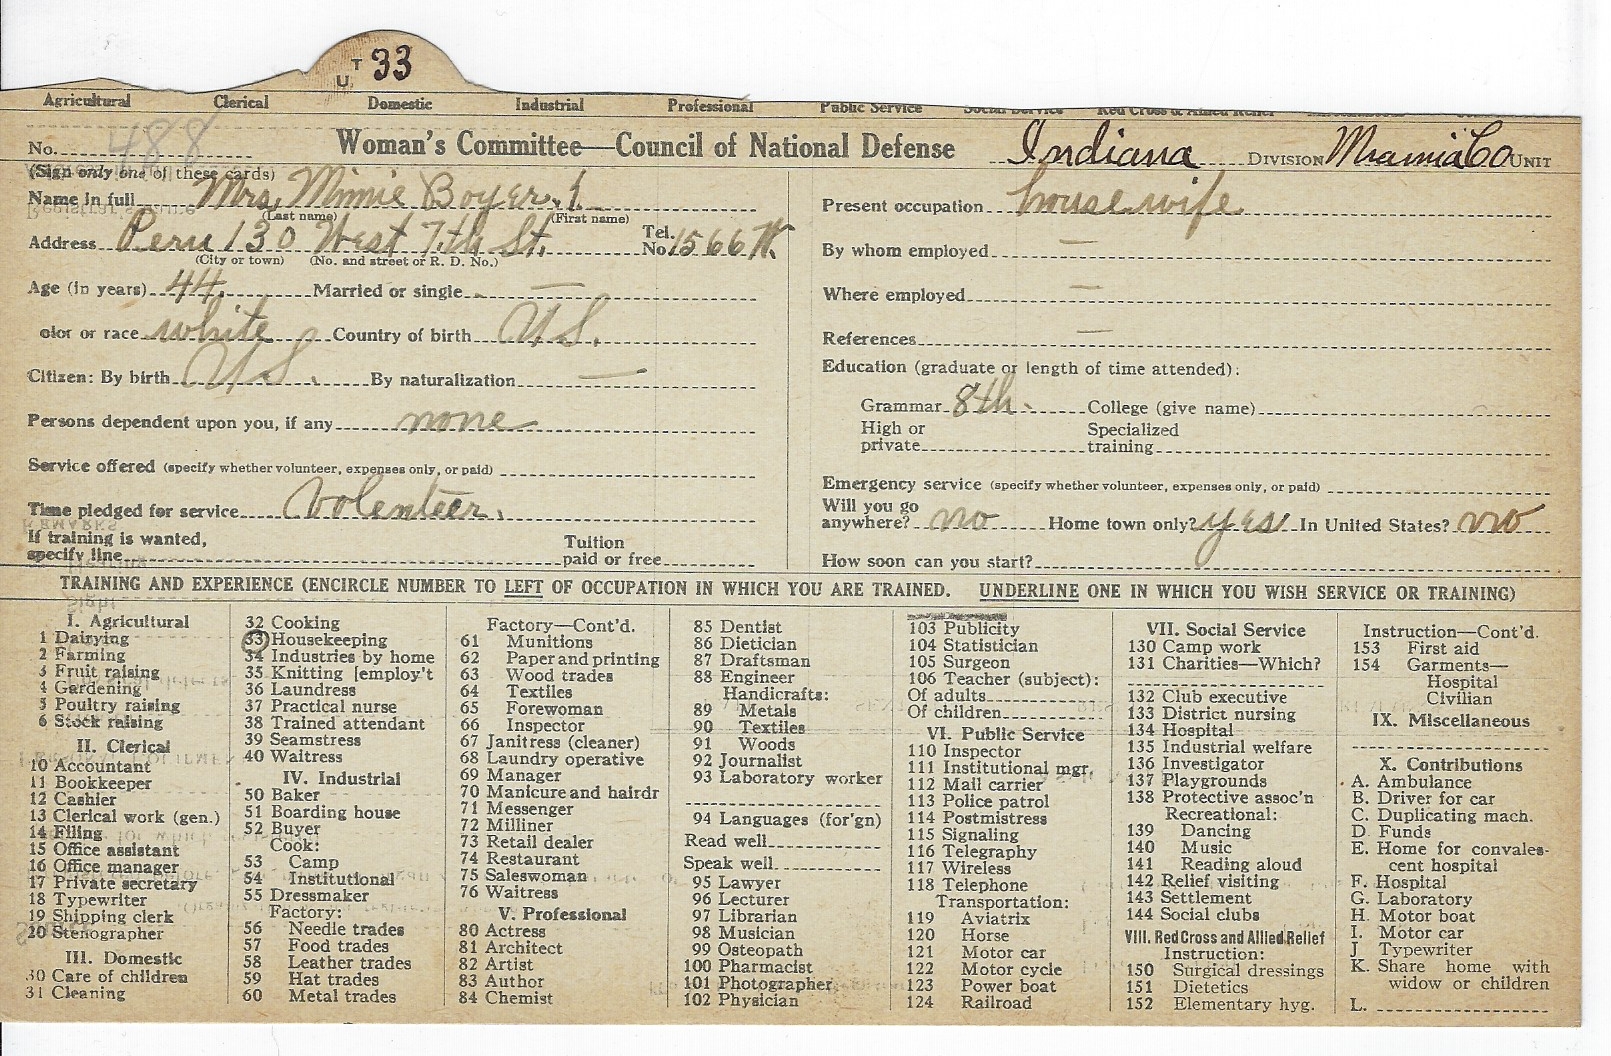 U T 33
Agricultural Clerical Domestic Industrial Professional Public Service Social Service Red Cross & Allied Relief
No. 488 Woman's Committee—Council of National Defense Indiana DIVISION Miami Co UNIT
(Sign only one of these cards)
Name in full Mrs, Mimie Boyer. 1.
(Last name) (First name)
Address Peru 130 West 7th St. Tel. No. 1566 W.
(City or town) (No. and street or R. D. No.)
Age (in years) 44. Married or single —
olor or race white Country of birth U S.
Citizen: By birth U S. By naturalization —
Persons dependent upon you, if any none
Service offered (specify whether volunteer, expenses only, or paid)
Time pledged for service Volenteer.
If training is wanted,
specify line Tuition paid or free
Present occupation house wife
By whom employed —
Where employed —
References —
Education (graduate or length of time attended):
Grammar 8th. College (give name)
High or private Specialized training
Emergency service (specify whether volunteer, expenses only, or paid)
Will you go anywhere? no Home town only? yes In United States? no
How soon can you start?
TRAINING AND EXPERIENCE (ENCIRCLE NUMBER TO LEFT OF OCCUPATION IN WHICH YOU ARE TRAINED. UNDERLINE ONE IN WHICH YOU WISH SERVICE OR TRAINING)
I. Agricultural
1 Dairying
2 Farming
3 Fruit raising
4 Gardening
5 Poultry raising
6 Stock raising
II. Clerical
10 Accountant
11 Bookkeeper
12 Cashier
13 Clerical work (gen.)
14 Filing
15 Office assistant
16 Office manager
17 Private secretary
18 Typewriter
19 Shipping clerk
20 Stenographer
III. Domestic
30 Care of children
31 Cleaning
32 Cooking
33 Housekeeping
34 Industries by home
35 Knitting [employ't
36 Laundress
37 Practical nurse
38 Trained attendant
39 Seamstress
40 Waitress
IV. Industrial
50 Baker
51 Boarding house
52 Buyer
Cook:
53 Camp
54 Institutional
55 Dressmaker
Factory:
56 Needle trades
57 Food trades
58 Leather trades
59 Hat trades
60 Metal trades
Factory—Cont'd.
61 Munitions
62 Paper and printing
63 Wood trades
64 Textiles
65 Forewoman
66 Inspector
67 Janitress (cleaner)
68 Laundry operative
69 Manager
70 Manicure and hairdr
71 Messenger
72 Milliner
73 Retail dealer
74 Restaurant
75 Saleswoman
76 Waitress
V. Professional
80 Actress
81 Architect
82 Artist
83 Author
84 Chemist
85 Dentist
86 Dietician
87 Draftsman
88 Engineer
Handicrafts:
89 Metals
90 Textiles
91 Woods
92 Journalist
93 Laboratory worker
94 Languages (for'gn)
Read well
Speak well
95 Lawyer
96 Lecturer
97 Librarian
98 Musician
99 Osteopath
100 Pharmacist
101 Photographer
102 Physician
103 Publicity
104 Statistician
105 Surgeon
106 Teacher (subject):
Of adults
Of children
VI. Public Service
110 Inspector
111 Institutional mgr.
112 Mail carrier
113 Police patrol
114 Postmistress
115 Signaling
116 Telegraphy
117 Wireless
118 Telephone
Transportation:
119 Aviatrix
120 Horse
121 Motor car
122 Motor cycle
123 Power boat
124 Railroad
VII. Social Service
130 Camp work
131 Charities—Which?
132 Club executive
133 District nursing
134 Hospital
135 Industrial welfare
136 Investigator
137 Playgrounds
138 Protective assoc'n
Recreational:
139 Dancing
140 Music
141 Reading aloud
142 Relief visiting
143 Settlement
144 Social clubs
VIII. Red Cross and Allied Relief
Instruction:
150 Surgical dressings
151 Dietetics
152 Elementary hyg.
Instruction—Cont'd.
153 First aid
154 Garments—
Hospital
Civilian
IX. Miscellaneous
X. Contributions
A. Ambulance
B. Driver for car
C. Duplicating mach.
D. Funds
E. Home for convales-
cent hospital
F. Hospital
G. Laboratory
H. Motor boat
I. Motor car
J Typewriter
K. Share home with
widow or children
L.